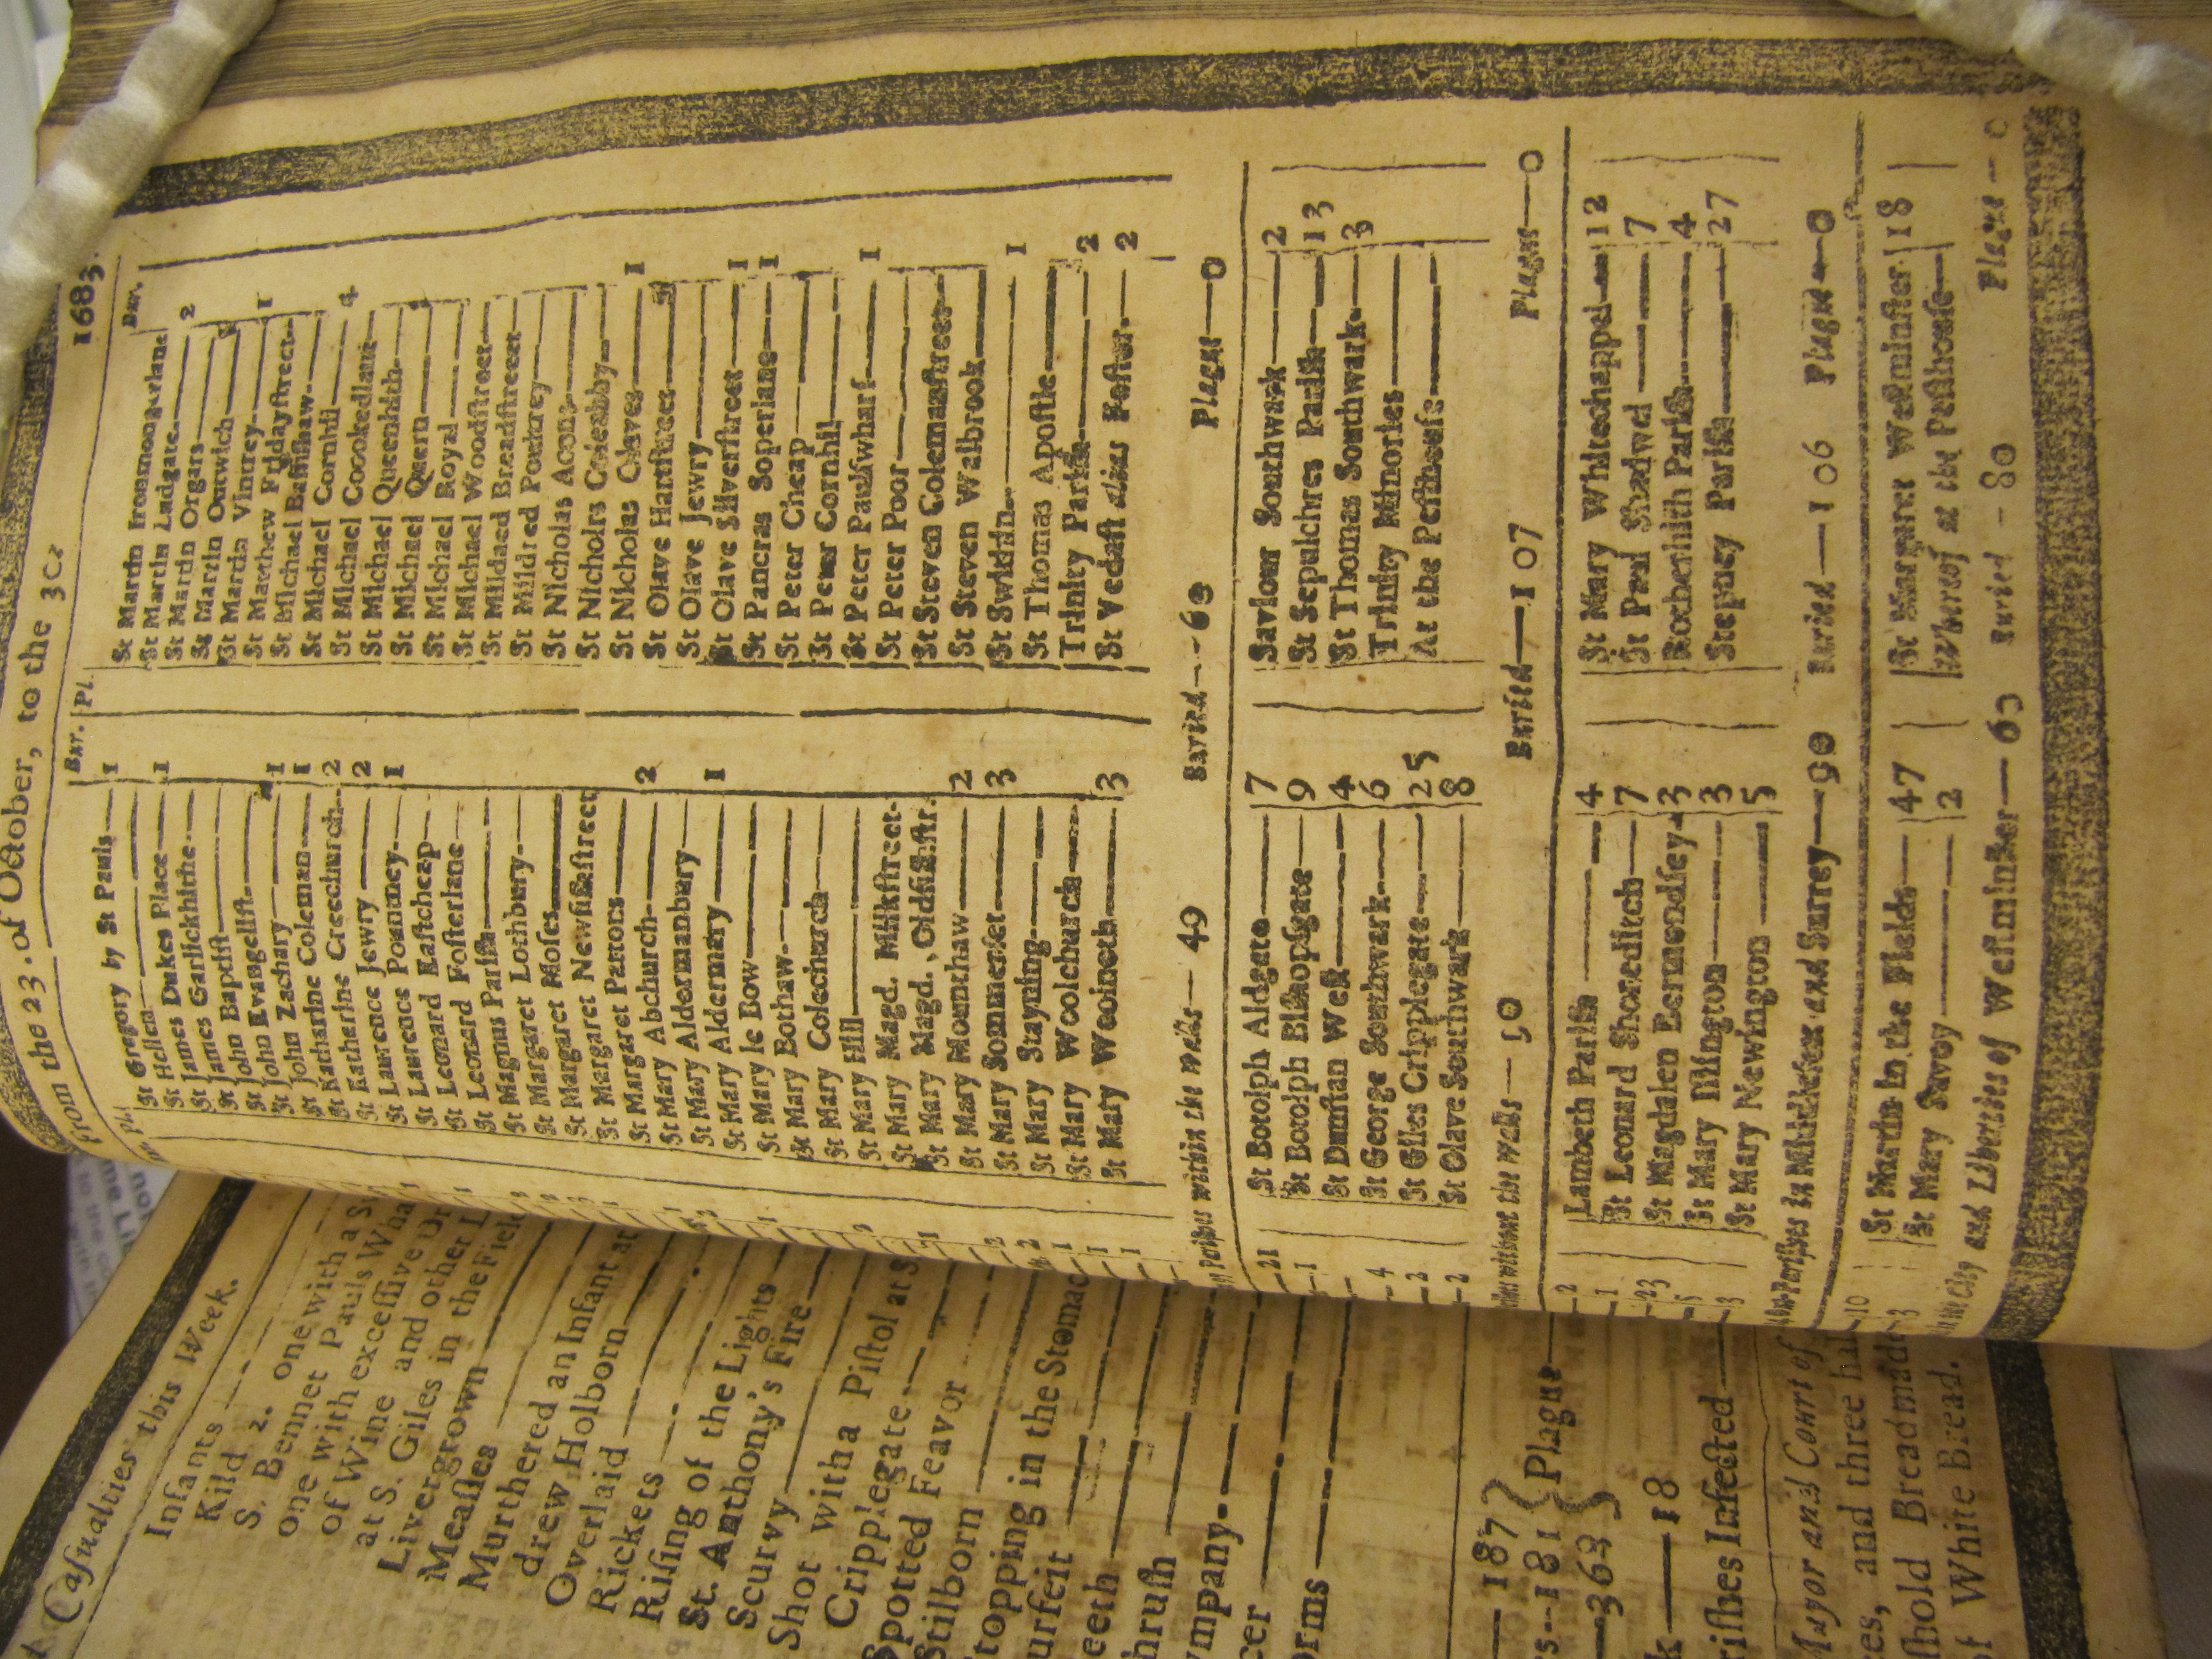 From the 23. of October, to the 30
1683.
Bur. Pl.
St Gregory by St Pauls 1
St Hellen
St James Dukes Place 1
St James Garlickhithe
St John Baptist
St John Evangelist
St John Zachary 1
St Katharine Coleman 1
St Katherine Creechurch 2
St Lawrence Jewry 2
St Lawrence Pountney 1
St Leonard Eastcheap
St Leonard Fosterlane
St Magnus Parish
St Margaret Lothbury
St Margaret Moses
St Margaret Newfishstreet
St Margaret Pattons
St Mary Abchurch 2
St Mary Aldermanbury
St Mary Aldermary 1
St Mary le Bow
St Mary Bothaw
St Mary Colechurch
St Mary Hill
St Mary Magd. Milkstreet
St Mary Magd. Oldfishstr.
St Mary Mounthaw 2
St Mary Sommerset 3
St Mary Stayning
St Mary Woolchurch
St Mary Woolnoth 3
Bur.
St Martin Iremongerlane
St Martin Ludgate 2
St Martin Orgars
St Martin Outwich
St Martin Vintrey 1
St Matthew Fridaystreet
St Michael Bassishaw
St Michael Cornhil 4
St Michael Crookedlane
St Michael Queenhith
St Michael Quern
St Michael Royal
St Michael Woodstreet
St Mildred Breadstreet
St Mildred Poultrey
St Nicholas Acons
St Nicholas Coleabby
St Nicholas Olaves 1
St Olave Hartstreet
St Olave Jewry
St Olave Silverstreet 1
St Pancras Soperlane 1
St Peter Cheap
St Peter Cornhil
St Peter Paulswharf 1
St Peter Poor
St Steven Colemanstreet
St Steven Walbrook
St Swithin 1
St Thomas Apostle
Trinity Parish 2
St Vedast alias Foster 2
Parishes within the walls — 49 Buried — Plague — 0
St Botolph Aldgate 7
St Botolph Bishopsgate 9
St Dunstan West 4
St George Southwark 6
St Giles Cripplegate 25
St Olave Southwark 8
Saviour Southwark 2
St Sepulchres Parish 13
St Thomas Southwark 3
Trinity Minories
At the Pesthouse
without the walls — 50 Buried — 107 Plague — 0
Lambeth Parish 4
St Leonard Shoreditch 7
St Magdalen Bermondsey 3
St Mary Islington 3
St Mary Newington 5
St Mary Whitechappel 12
St Paul Shadwel 7
Rotherhith Parish 4
Stepney Parish 27
Parishes in Middlesex and Surrey — 90 Buried — 106 Plague — 0
St Martin in the Fields 47
St Mary Savoy 2
St Margaret Westminster 18
Whereof at the Pesthouse
City and Liberties of Westminster — 63 Buried — 80 Plague — 0
Casualties this Week.
Infants
Kild 2. one with a
S. Bennet Pauls Wha
one with excessive
of Wine and other
at S. Giles in the Field
Livergrown
Measles
Murthered an Infant at
drew Holborn
Overlaid
Rickets
Rising of the Lights
St. Anthony's Fire
Scurvy
Shot with a Pistol at S
Cripplegate
Spotted Feavor
Stilborn
topping in the Stomac
urfeit
eeth
hrush
ympany
cer
orms
187
181 } Plague
363
18
rishes Infected
Mayor and Court of
es, and three hal
shold Bread made
of White Bread.